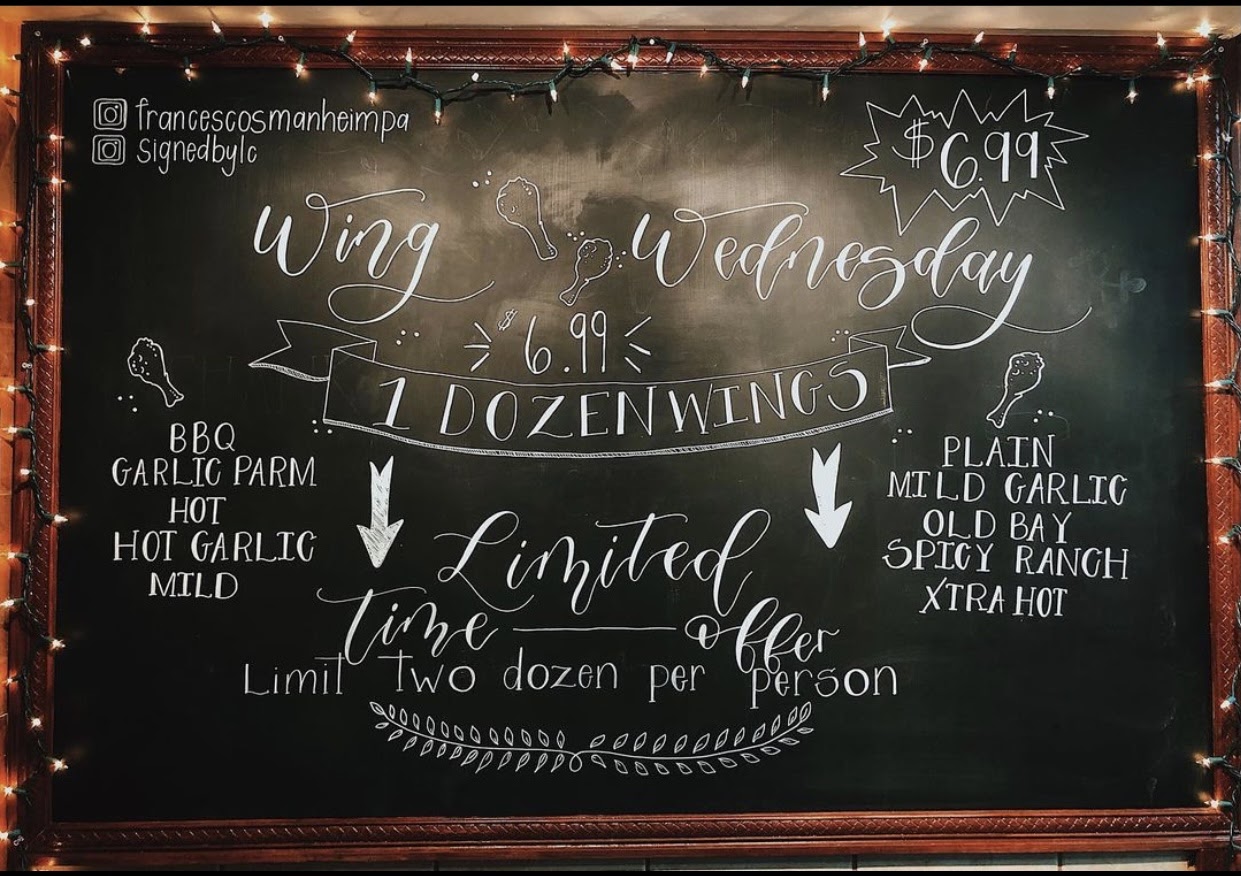 francescosmanheimpa
signedbylc
$6.99
Wing Wednesday
$6.99
1 DOZEN WINGS
BBQ
GARLIC PARM
HOT
HOT GARLIC
MILD
PLAIN
MILD GARLIC
OLD BAY
SPICY RANCH
XTRA HOT
Limited
time offer
Limit Two dozen per person